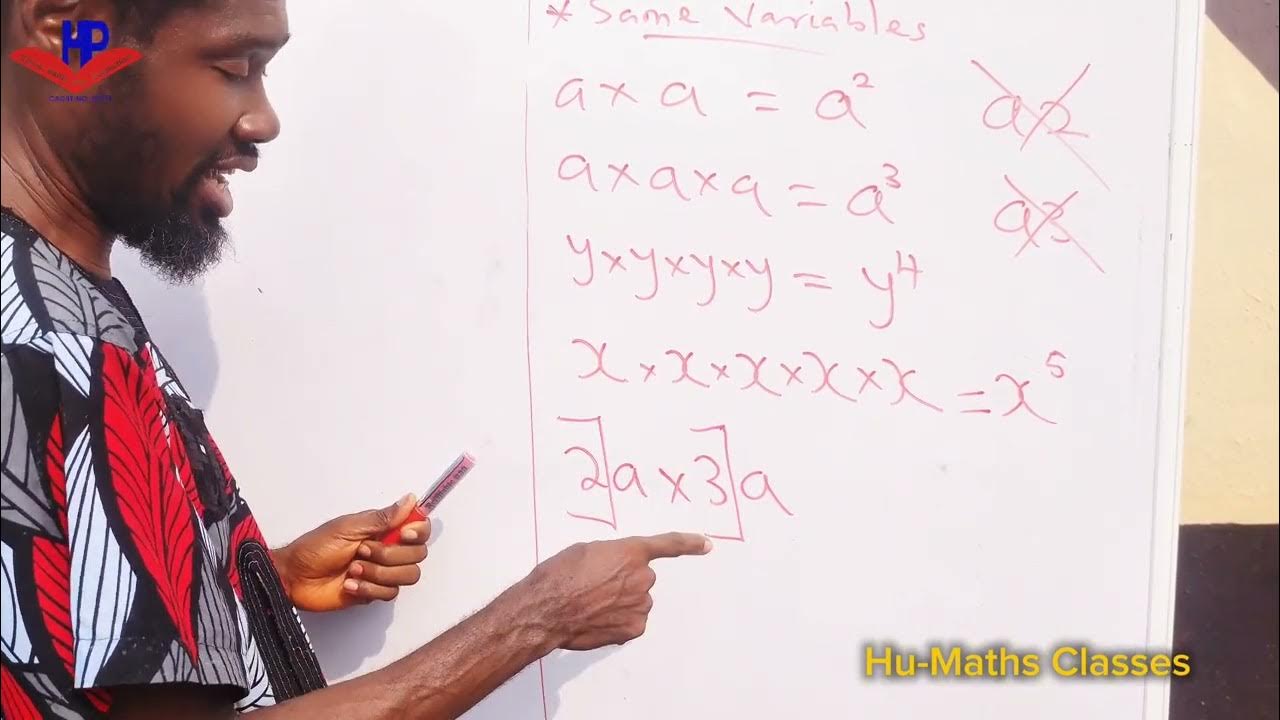 HP
* Same Variables
a × a = a² a2
a × a × a = a³ a3
y × y × y × y = y⁴
x × x × x × x × x = x⁵
2]a × 3]a
Hu-Maths Classes